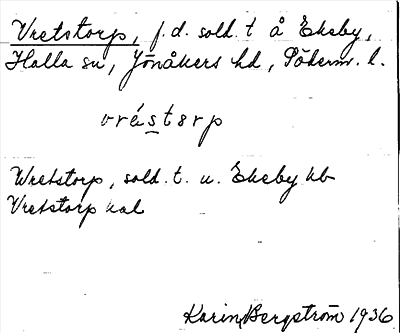 Vretstorp, f.d. sold. t å Ekeby,
Halla sn, Jönåkers hd, Söderm. l.
vréstorp
Wretstorp, sold. t. u. Ekeby hb
Vretstorp kal
Karin Bergström 1936